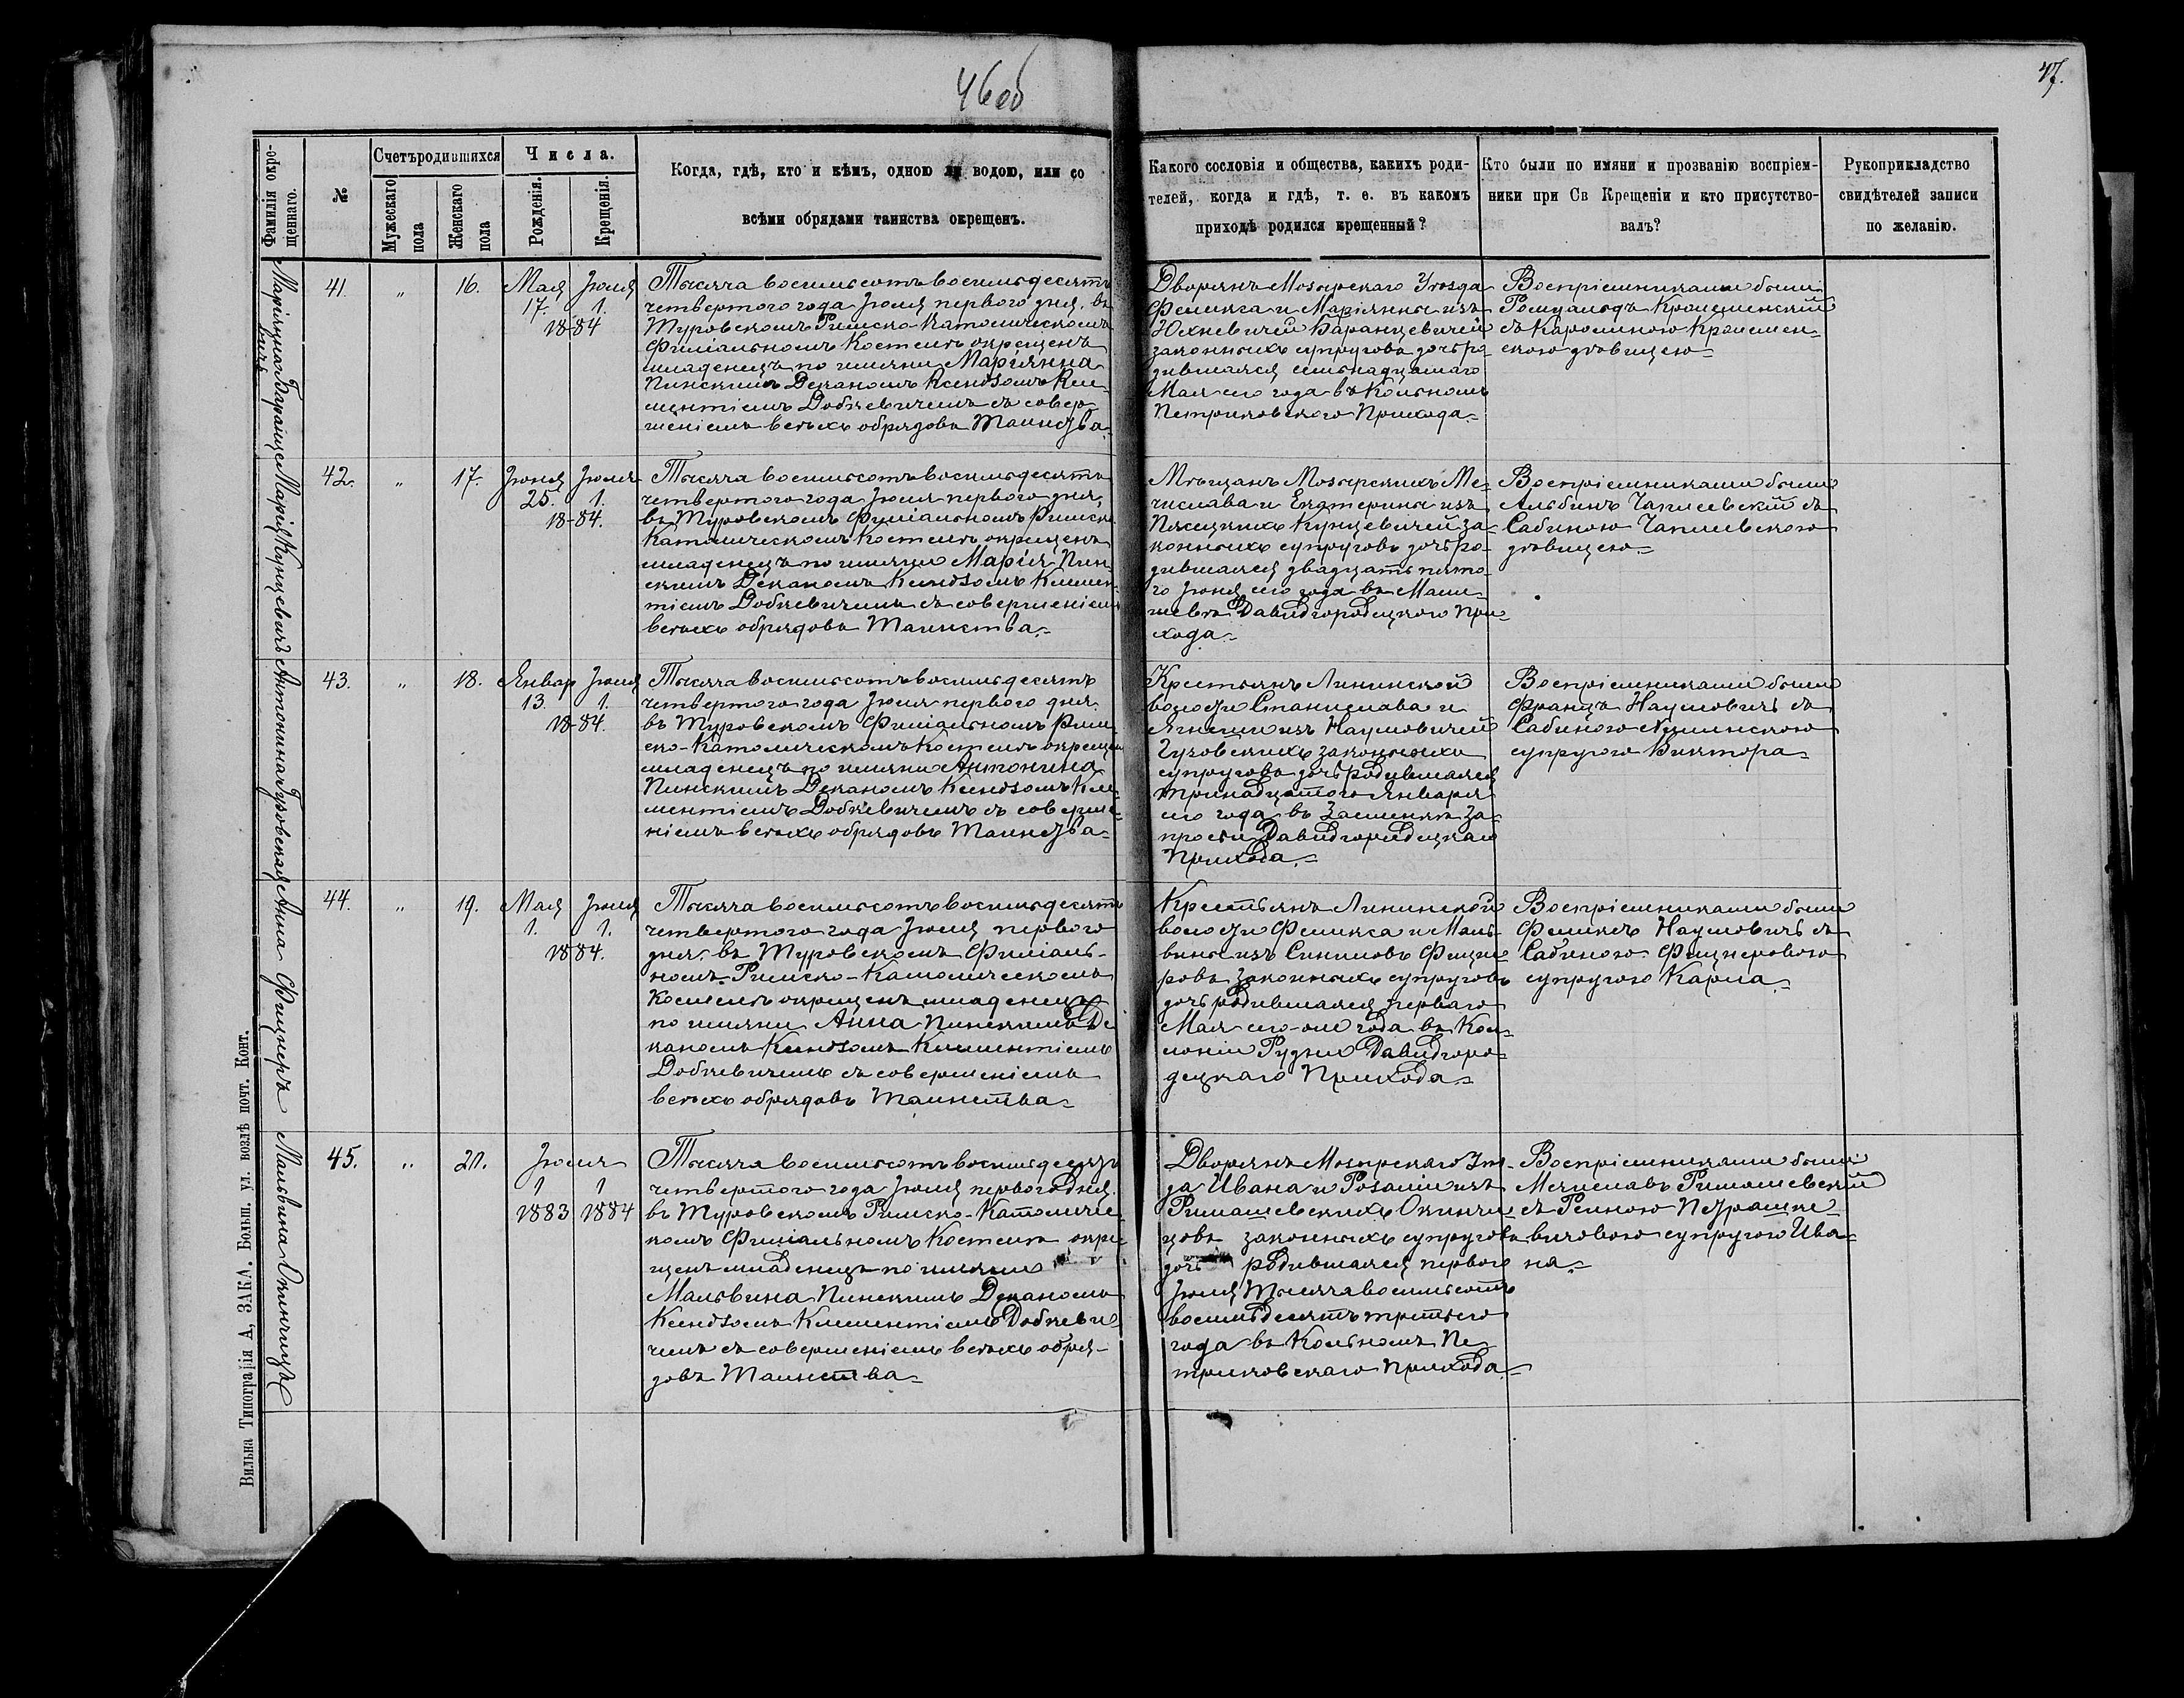 46 об
47.
Фамилія окре-
щеннаго.
№
Счетъ родившихся
Мужескаго
пола
Женскаго
пола
Числа.
Рожденія.
Крещенія.
Когда, гдѣ, кто и кѣмъ, одною ли водою, или со
всѣми обрядами таинства окрещенъ.
Какого сословія и общества, какихъ роди-
телей, когда и гдѣ, т. е. въ какомъ
приходѣ родился крещенный?
Кто были по имяни и прозванію воспріем-
ники при Св Крещеніи и кто присутство-
валъ?
Рукоприкладство
свидѣтелей записи
по желанію.
Маріянна Баранце-
вичъ
41.
"
16.
Мая Іюля
17. 1.
1884
Тысяча восемьсотъ восемьдесятъ
четвертого года Іюля первого дня, въ
Туровскомъ Римско-Католическомъ
Филіальномъ Костелѣ окрещенъ
младенецъ по имяни Маріянна
Пинскимъ Деканомъ Ксендзомъ Кли-
ментіемъ Добкевичемъ съ совер-
шеніемъ всѣхъ обрядовъ Таинства.
Дворянъ Мозырскаго Уѣзда
Феликса и Маріянны изъ
Юхневичей Баранцевичей
законныхъ супруговъ дочь ро-
дившаяся семьнадцатаго
Мая сего года въ Кольномъ
Петриковского Прихода.
Воспріемниками были
Ромуальдъ Кролещенскій
съ Каролиною
скою дѣвицею
Марія Кунцевичъ
42.
"
17.
Іюня Іюля
25. 1.
1884.
Тысяча восемьсотъ восемьдесятъ
четвертого года Іюля первого дня,
въ Туровскомъ Филіальномъ Римско-
Католическомъ Костелѣ окрещенъ
младенецъ по имяни Марія Пин-
скимъ Деканомъ Ксендзомъ Климен-
тіемъ Добкевичемъ съ совершеніемъ
всѣхъ обрядовъ Таинства.
Мѣщанъ Мозырскихъ Ме-
числава и Екатерины изъ
Кунцевичей за-
конныхъ супруговъ дочь ро-
дившаяся двадцать пято-
го Іюня сего года въ
Давидгородецкого При-
хода.
Воспріемниками были
Альбинъ Чаплевскій съ
Сабиною Чаплевскою
дѣвицею
Антонина Гузовская
43.
"
18.
Январ Іюля
13. 1.
1884.
Тысяча восемьсотъ восемьдесятъ
четвертого года Іюля первого дня
въ Туровскомъ Филіальномъ Рим-
ско-Католическомъ Костелѣ окрещенъ
младенецъ по имяни Антонина
Пинскимъ Деканомъ Ксендзомъ Кли-
ментіемъ Добкевичемъ съ соверше-
ніемъ всѣхъ обрядовъ Таинства
Крестьянъ Ленинской
волости Станислава и
Агнеши изъ Наумовичей
Гузовскихъ законныхъ
супруговъ дочь родившаяся
тринадцатого Января
сего года въ
Давидгородецкаго
Прихода.
Воспріемниками были
Францъ Наумовичъ съ
Сабиною
супругою Виктора
Анна Фицнеръ
44.
"
19.
Мая Іюля
1. 1.
1884.
Тысяча восемьсотъ восемьдесятъ
четвертого года Іюля первого
дня, въ Туровскомъ Филіаль-
номъ Римско-Католическомъ
Костелѣ окрещенъ младенецъ
по имяни Анна Пинскимъ Де
каномъ Ксендзомъ Климентіемъ
Добкевичемъ съ совершеніемъ
всѣхъ обрядовъ Таинства
Крестьянъ Ленинской
волости Феликса и Маль-
вины изъ Фицне-
ровъ законныхъ супруговъ
дочь родившаяся перваго
Мая сего года въ Кол-
лоніи Рудни Давидгоро-
децкаго Прихода
Воспріемниками были
Феликсъ Наумовичъ съ
Сабиною Фицнеровою
супругою Карла.
Мальвина Окинчицъ
45.
"
20.
Іюля
1 1
1883 1884
Тысяча восемьсотъ восемьдесятъ
четвертого года Іюля первого дня
въ Туровскомъ Римско-Католичес-
комъ Филіальномъ Костелѣ окре-
щенъ младенецъ по имяни
Мальвина Пинскимъ Деканомъ
Ксендзомъ Климентіемъ Добкеви-
чемъ съ совершеніемъ всѣхъ обря-
довъ Таинства
Дворянъ Мозырскаго Уѣз-
да Ивана и Розаліи изъ
Римашевскихъ Окинчи-
цовъ законныхъ супруговъ
дочь родившаяся первого
Іюля Тысяча восемьсотъ
восемьдесятъ третьего
года въ Кольномъ Пе
триковскаго Прихода
Воспріемниками были
Мечиславъ Римашевскій
съ Петрашке-
вичовою супругою Ива-
на.
Вильна Типографія А, ЗАКА. Больш. ул. возлѣ почт. Конт.